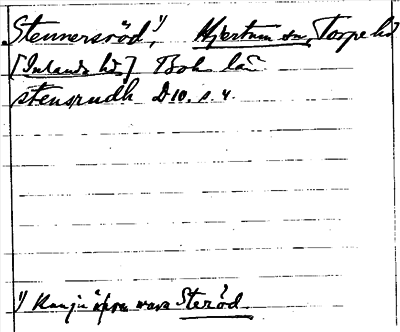 „Stennersröd”,¹⁾ Hjärtum sn Torpe hd
[Inlands hd] Boh. län
stensrudh D10. s. 4.
¹⁾ Kan ju äfven vara Steröd